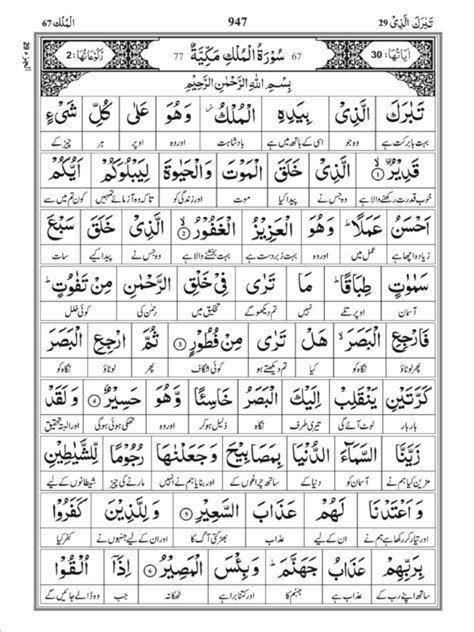 تَبٰرَكَ الَّذِیْ 29 947 اَلْمُلْك 67
اٰیَاتُهَا: 30 67 سُوْرَةُ الْمُلْكِ مَكِّیَّةٌ 77 رُكُوْعَاتُهَا: 2
بِسْمِ اللّٰهِ الرَّحْمٰنِ الرَّحِیْمِ
تَبٰرَكَ الَّذِیْ بِیَدِهِ الْمُلْكُ وَهُوَ عَلٰی كُلِّ شَیْءٍ
بہت بابرکت ہے وہ جو اسی کے ہاتھ میں ہے بادشاہت اور وہ اوپر ہر چیز کے
قَدِیْرُ ۙ۝1 الَّذِیْ خَلَقَ الْمَوْتَ وَالْحَیٰوةَ لِیَبْلُوَكُمْ اَیُّكُمْ
خوب قدرت رکھنے والا ہے وہ جس نے پیدا کیا موت اور زندگی کو تاکہ وہ آزمائے تمہیں کون تم میں سے
اَحْسَنُ عَمَلًا ؕ وَهُوَ الْعَزِیْزُ الْغَفُوْرُ ۙ۝2 الَّذِیْ خَلَقَ سَبْعَ
زیادہ اچھا ہے عمل میں اور وہ بہت زبردست ہے بہت بخشنے والا ہے وہ جس نے پیدا کیے سات
سَمٰوٰتٍ طِبَاقًا ؕ مَا تَرٰی فِیْ خَلْقِ الرَّحْمٰنِ مِنْ تَفٰوُتٍ ؕ
آسمان اوپر تلے نہیں تم دیکھو گے تخلیق میں رحمٰن کی کوئی خلل
فَارْجِعِ الْبَصَرَ ۙ هَلْ تَرٰی مِنْ فُطُوْرٍ ۝3 ثُمَّ ارْجِعِ الْبَصَرَ
پھر لوٹاؤ نگاہ کو کیا تم دیکھتے ہو کوئی شگاف پھر لوٹاؤ نگاہ کو
كَرَّتَیْنِ یَنْقَلِبْ اِلَیْكَ الْبَصَرُ خَاسِئًا وَّهُوَ حَسِیْرٌ ۝4 وَلَقَدْ
بار بار لوٹ آئے گی تیری طرف نگاہ ذلیل ہو کر اور وہ تھکی ہوگی اور البتہ تحقیق
زَیَّنَّا السَّمَآءَ الدُّنْیَا بِمَصَابِیْحَ وَجَعَلْنٰهَا رُجُوْمًا لِّلشَّیٰطِیْنِ
مزین کیا ہم نے آسمان کو دنیا کے ساتھ چراغوں کے اور بنایا ہم نے انہیں مارنے کی چیز شیطانوں کے لیے
وَاَعْتَدْنَا لَهُمْ عَذَابَ السَّعِیْرِ ۝5 وَلِلَّذِیْنَ كَفَرُوْا
اور تیار کر رکھا ہے ہم نے ان کے لیے عذاب بھڑکتی آگ کا اور ان کے لیے جنہوں نے کفر کیا
بِرَبِّهِمْ عَذَابُ جَهَنَّمَ ؕ وَبِئْسَ الْمَصِیْرُ ۝6 اِذَآ اُلْقُوْا
ساتھ اپنے رب کے عذاب ہے جہنم کا اور کتنا برا ہے ٹھکانہ جب وہ ڈالے جائیں گے